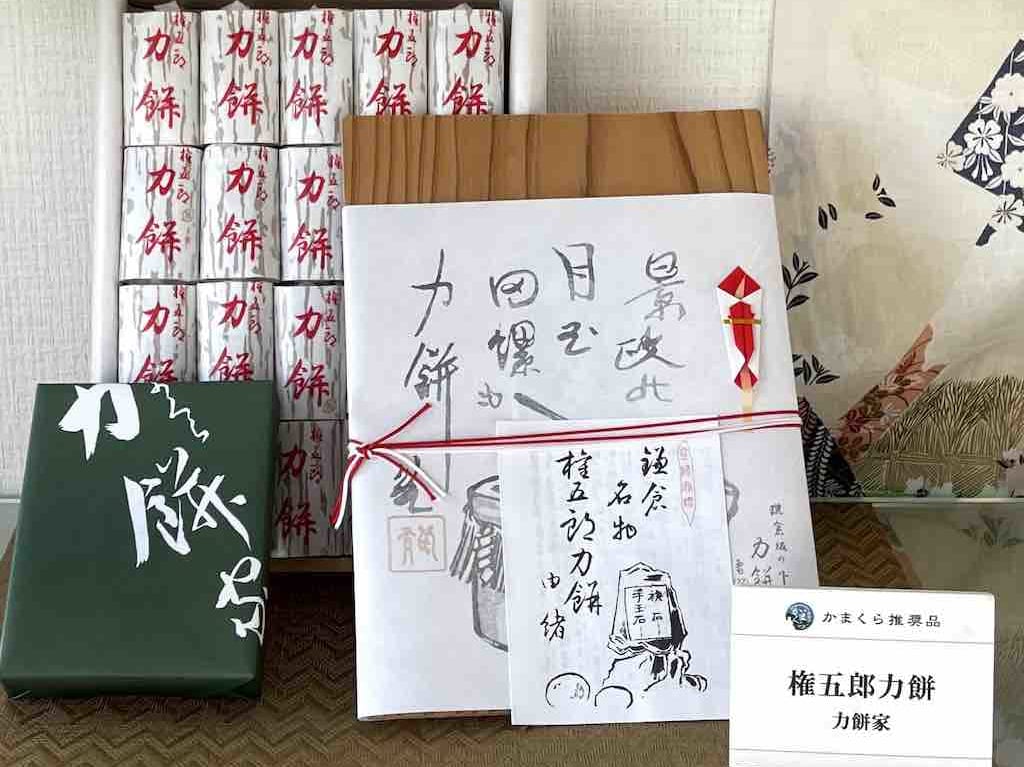 権五郎
力餅
権五郎
力餅
権五郎
力餅
権五郎
力餅
権五郎
力餅
権五郎
力餅
権五郎
力餅
権五郎
力餅
権五郎
力餅
権五郎
力餅
権五郎
力餅
権五郎
力餅
景政の
目玉
田螺か
力餅
鎌倉
名物
権五郎力餅
由緒
横石
手玉石
力餅
かまくら推奨品
権五郎力餅
力餅家